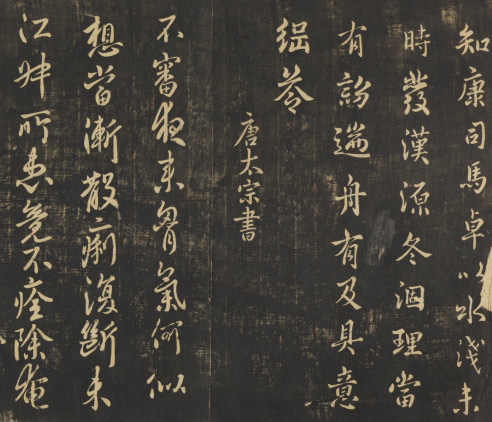 知康司馬卓以水淺未
時發漢源冬涸理當
有詔遄舟有及具意
唐太宗書
不審夜來胷氣何似
想當漸散痢復斷未
江叔所患竟不痊除奄